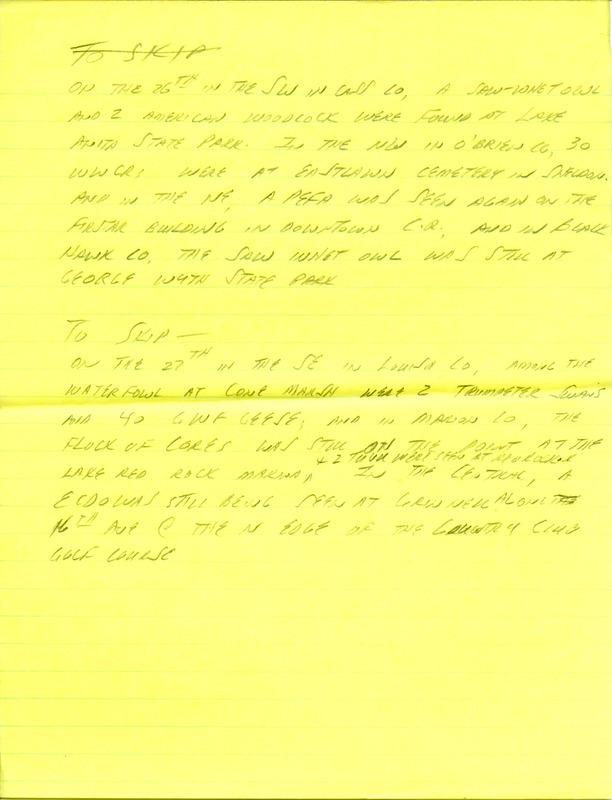 TO SKIP
ON THE 26TH IN THE SW IN CASS CO, A SAW-WHET OWL
AND 2 AMERICAN WOODCOCK WERE FOUND AT LAKE
ANITA STATE PARK. IN THE NW IN O'BRIEN CO, 30
WWCR WERE AT EASTLAWN CEMETERY IN SHELDON.
AND IN THE NE, A PEFA WAS SEEN AGAIN ON THE
FIRSTAR BUILDING IN DOWNTOWN C.R., AND IN BLACK
HAWK CO, THE SAW WHET OWL WAS STILL AT
GEORGE WYTH STATE PARK
TO SKIP —
ON THE 27TH IN THE SE IN LOUISA CO, AMONG THE
WATERFOWL AT CONE MARSH WERE 2 TRUMPETER SWANS
AND 40 GWF GEESE; AND IN MARION CO, THE
FLOCK OF CORES WAS STILL AT THE POINT AT THE
+ 2 WERE SEEN AT
LAKE RED ROCK MARINA, IN THE CENTRAL, A
ECDO WAS STILL BEING SEEN AT GRINNELL ALONG
16TH AVE @ THE N EDGE OF THE COUNTRY CLUB
GOLF COURSE